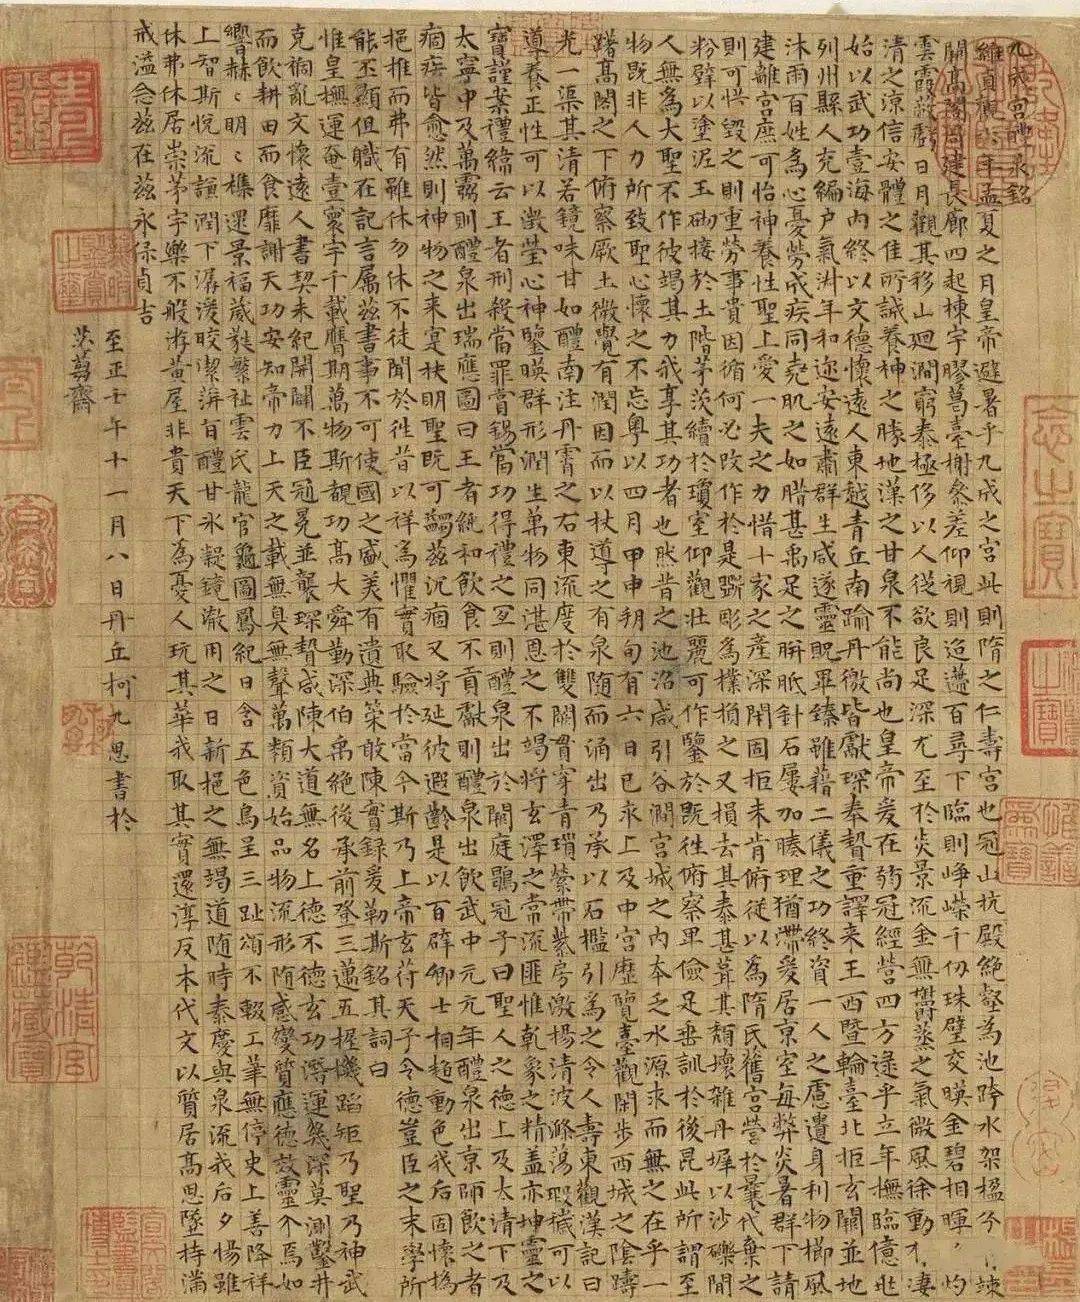 九成宮醴泉銘
維貞觀六年孟夏之月皇帝避暑乎九成之宮此則隋之仁壽宮也冠山抗殿絕壑為池跨水架楹分竦
闕高閣周建長廊四起棟宇膠葛臺榭參差仰視則迢遰百尋下臨則崢嶸千仞珠璧交暎金碧相暉灼
雲霞蔽虧日月觀其移山迴澗窮泰極侈以人從欲良足深尤至於炎景流金無鬱蒸之氣微風徐動有淒
清之涼信安體之佳所誠養神之勝地漢之甘泉不能尚也皇帝爰在弱冠經營四方逮乎立年撫臨億兆
始以武功壹海內終以文德懷遠人東越青丘南踰丹徼皆獻琛奉贄重譯來王西暨輪臺北拒玄闕並地
列州縣人充編戶氣淑年和迩安遠肅群生咸遂靈貺畢臻雖藉二儀之功終資一人之慮遺身利物櫛風
沐雨百姓為心憂勞成疾同堯肌之如腊甚禹足之胼胝針石屢加腠理猶滯爰居京室每弊炎暑群下請
建離宮庶可怡神養性聖上愛一夫之力惜十家之產深閉固拒未肯俯從以為隋氏舊宮營於曩代棄之
則可惜毀之則重勞事貴因循何必改作於是斲彫為樸損之又損去其泰甚葺其頹壞雜丹墀以沙礫間
粉壁以塗泥玉砌接於土階茅茨續於瓊室仰觀壯麗可作鑒於既往俯察卑儉足垂訓於後昆此所謂至
人無為大聖不作彼竭其力我享其功者也然昔之池沼咸引谷澗宮城之內本乏水源求而無之在乎一
物既非人力所致聖心懷之不忘粵以四月甲申朔旬有六日己亥上及中宮歷覽臺觀閑步西城之陰躊
躇高閣之下俯察厥土微覺有潤因而以杖導之有泉隨而涌出乃承以石檻引為之令人壽東觀漢記曰
光一渠其清若鏡味甘如醴南注丹霄之右東流度於雙闕貫穿青瑣縈帶紫房激揚清波滌蕩瑕穢可以
導養正性可以澂瑩心神鑒暎群形潤生萬物同湛恩之不竭將玄澤之常流匪惟乾象之精蓋亦坤靈之
寶謹案禮緯云王者刑殺當罪賞錫當功得禮之宜則醴泉出於闕庭鶡冠子曰聖人之德上及太清下及
太寧中及萬靈則醴泉出瑞應圖曰王者純和飲食不貢獻則醴泉出飲武中元元年醴泉出京師飲之者
痼疾皆愈然則神物之來寔扶明聖既可蠲茲沉痼又將延彼遐齡是以百辟卿士相趨動色我后固懷撝
挹推而弗有雖休勿休不徒聞於往昔以祥為懼實取驗於當今斯乃上帝玄符天子令德豈臣之末學所
能丕顯但職在記言屬茲書事不可使國之盛美有遺典策敢陳實錄爰勒斯銘其詞曰
惟皇撫運奄壹寰宇千載膺期萬物斯覩功高大舜勤深伯禹絕後承前登三邁五握機蹈矩乃聖乃神武
克禍亂文懷遠人書契未紀開闢不臣冠冕並襲琛贄咸陳大道無名上德不德玄功潛運幾深莫測鑿井
而飲耕田而食靡謝天功安知帝力上天之載無臭無聲萬類資始品物流形隨感變質應德效靈介焉如
響赫〻明〻雜遝景福葳蕤繁祉雲氏龍官龜圖鳳紀日含五色烏呈三趾頌不輟工筆無停史上善降祥
上智斯悅流謙潤下潺湲皎潔蓱旨醴甘冰凝鏡澈用之日新挹之無竭道隨時泰慶與泉流我后夕惕雖
休弗休居崇茅宇樂不般游黃屋非貴天下為憂人玩其華我取其實還淳反本代文以質居高思墜持滿
戒溢念茲在茲永保貞吉
至正壬午十一月八日丹丘柯九思書於
齋
乾清宮鑒藏寶